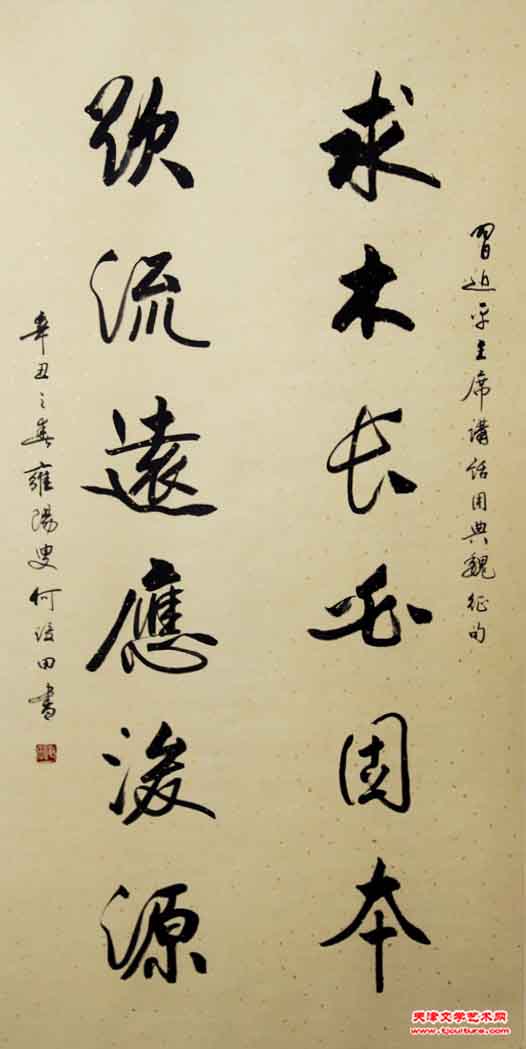 習近平主席講話用典魏征句
求木长必固本
欲流遠應浚源
辛丑之春雍陽叟何浚田書
天津文学艺术网
www.tjculture.com